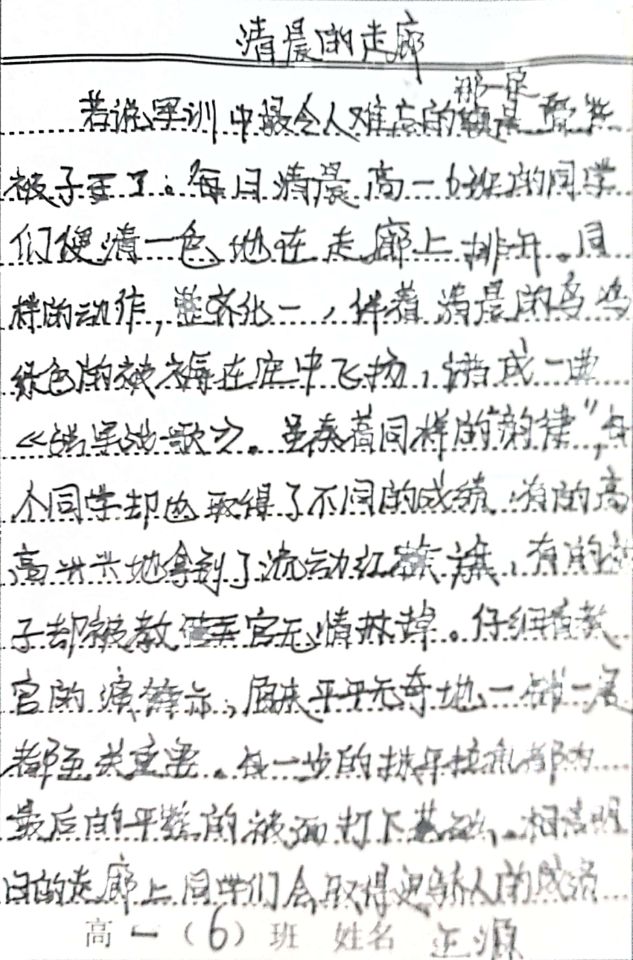 清晨的走廊
若说军训中最令人难忘的那一定
被子了。每日清晨高一6班的同学
们便清一色地在走廊上排开。同
样的动作,整齐化一,伴着清晨的鸟鸣
绿色的被褥在空中飞扬,谱成一曲
《战歌》。虽奏着同样的"韵律",每
个同学却也取得了不同的成绩,有的高
高兴兴地拿到了流动红旗,有的被
子却被教官无情抹掉。仔细看教
官的演示,原来平平无奇地一铺一展
都至关重要。每一步的抹平拉扯都为
最后的平整的被面打下基础。相信明
日的走廊上同学们会取得更骄人的成绩
高一(6)班 姓名